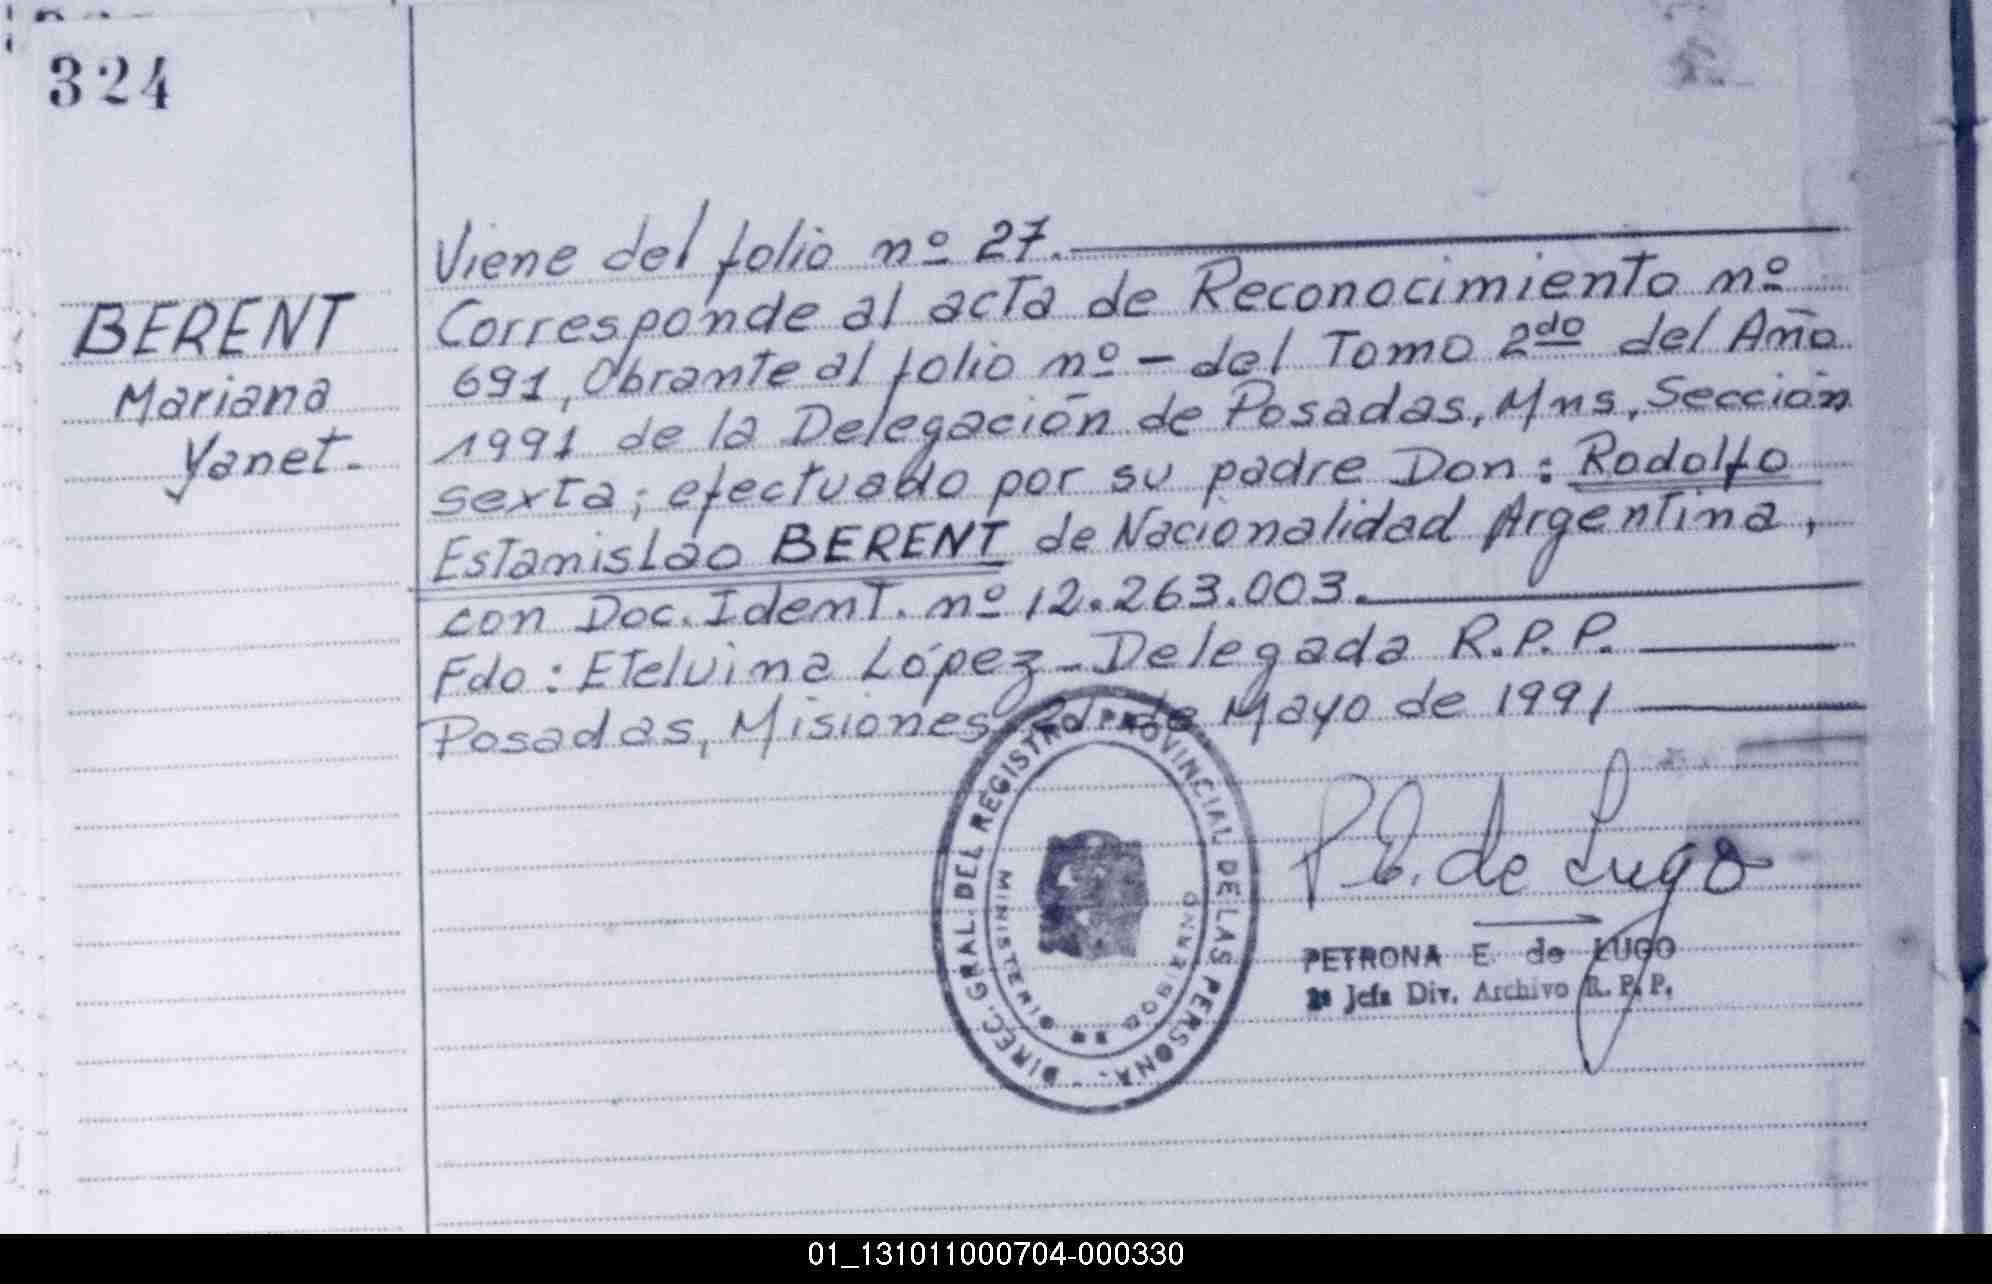 324
BERENT
Mariana
Yanet.
Viene del folio nº 27.
Corresponde al acta de Reconocimiento nº
691, Obrante al folio nº - del Tomo 2do del Año
1991 de la Delegación de Posadas, Mns, Sección
sexta; efectuado por su padre Don: Rodolfo
Estanislao BERENT de Nacionalidad Argentina,
con Doc. Ident. nº 12.263.003.
Fdo: Etelvina López - Delegada R.P.P.
Posadas, Misiones de Mayo de 1991
DIREC. GRAL. DEL REGISTRO PROVINCIAL DE LAS PERSONA-
MINISTERIO
GOBIERNO
P. E. de Lugo
PETRONA E. de LUGO
2ª Jefa Div. Archivo R. P. P.
01_131011000704-000330